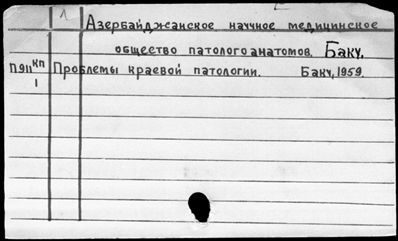 1 Азербайджанское научное медицинское
общество патологоанатомов. Баку.
П911 КП Проблемы краевой патологии. Баку, 1959.
1